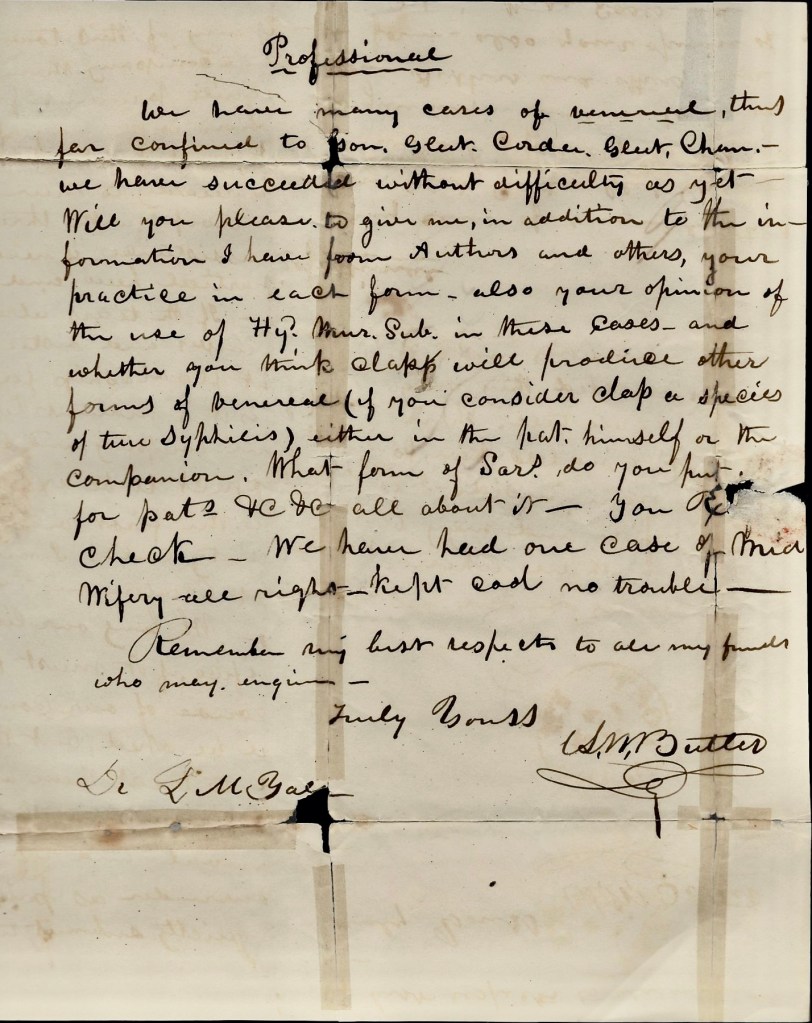 Professional
We have many cases of venereal, thus
far confined to Gon. Gleet. Cordee. Gleet, Chan.—
we have succeeded without difficulty as yet—
Will you please. to give me, in addition to the in—
formation I have from Authors and others, your
practice in each form – also your opinion of
the use of Hy. Mur. Sub. in these cases – and
whether you think clapp will produce other
forms of venereal (if you consider clap a species
of true Syphilis) either in the pat. himself or the
companion. What form of Sars. do you put.
for pats &C &C all about it — You
check – We have had one case of Mid
Wifery all right – kept cool no trouble —
Remember my best respects to all my friends
who may. enquire –
Truly Yours
S. W. Butler
Dr L M